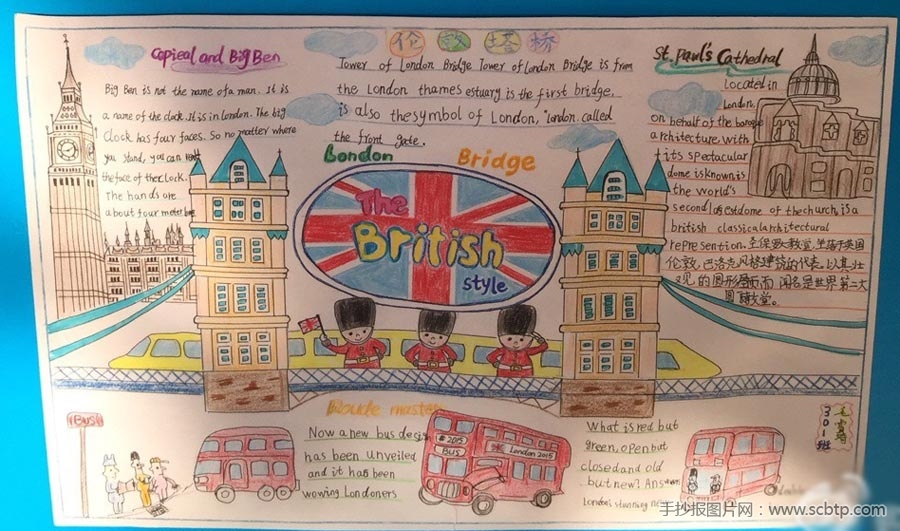 Copieal and Big Ben
Big Ben is not the name of a man. It is
a name of the clock. It is in London. The big
clock has four faces. So no matter where
you stand, you can
the face of the clock.
The hands are
about four meter
伦敦塔桥
Tower of London Bridge Tower of London Bridge is from
the London thames estuary is the first bridge,
is also the symbol of London, London called
the front gate.
London Bridge
The
British
style
St. Paul's Cathedral
Located in
London,
on behalf of the baroque
architecture, with
its spectacular
dome is known is
the world's
second largest dome of the church, is a
british classical architectural
represention. 圣保罗大教堂,坐落于英国
伦敦,巴洛克风格建筑的代表,以其壮
观的圆形屋顶而闻名,是世界第二大
圆顶教堂。
Roude master
Now a new bus design
has been unveiled
and it has been
wowing Londoners
BUS
# 2015
BUS
London 2015
What is red but
green, open but
closed and old
but new? Answer
London's stunning
301班
手抄报图片网:www.scbtp.com